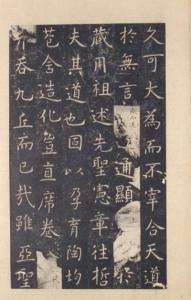 久可大為而不宰合天道
於無言通顯於
藏用祖述先聖憲章往哲
夫其道也固以孕育陶均
苞含造化豈直席卷
并吞九丘而已哉雖亞聖